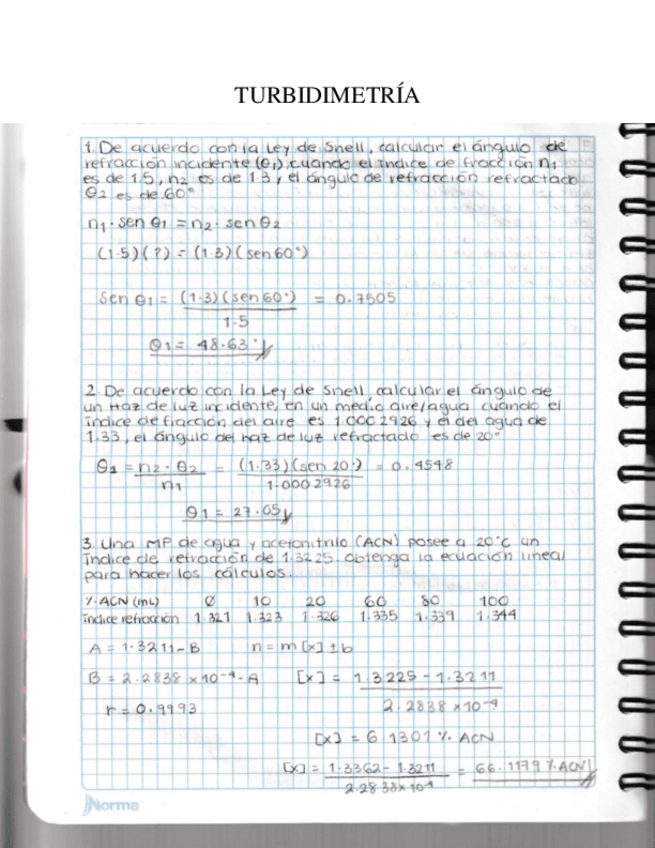 TURBIDIMETRÍA
1. De acuerdo con la Ley de Snell, calcular el ángulo de
refracción incidente (θ1), cuando el índice de fracción n1
es de 1.5, n2 es de 1.3 y el ángulo de refracción refractado
θ2 es de 60°
n1 · sen θ1 = n2 · sen θ2
(1.5) (?) = (1.3) (sen 60°)
Sen θ1 = (1.3) (sen 60°) = 0.7505
1.5
θ1 = 48.63°
2. De acuerdo con la Ley de Snell, calcular el ángulo de
un Haz de luz incidente, en un medio aire/agua cuando el
índice de fracción del aire es 1.0002926 y el del agua de
1.33, el ángulo del haz de luz refractado es de 20°
θ1 = n2 · θ2 = (1.33) (sen 20°) = 0.4548
n1 1.0002926
θ1 = 27.05
3. Una MP de agua y acetonitrilo (ACN) posee a 20°C un
índice de refracción de 1.3225 obtenga la ecuación lineal
para hacer los cálculos.
% ACN (mL) Ø 10 20 60 80 100
índice refracción 1.321 1.323 1.326 1.335 1.339 1.344
A = 1.3211 - B n = m [x] ± b
B = 2.2838 x10⁻⁴ - A [x] = 1.3225 - 1.3211
r = 0.9993 2.2838 x10⁻⁴
[x] = 6.1301 % ACN
[x] = 1.3362 - 1.3211 = 66.1179 % ACN
2.2838 x10⁻⁴
Norma